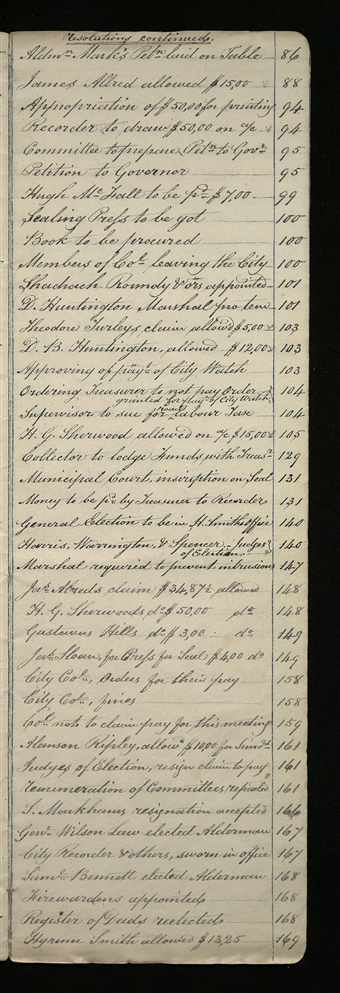 resolutions continued.
Aldmn. Mark's Petn. laid on Table 86
James Allred allowed $15,00 88
Appropriation of $50,00 for printing 94
Recorder to draw $50,00 on a/c 94
Committee to prepare Petn. to Govr. 95
Petition to Governor 95
Hugh Mc. Fall to be pd. $7,00 99
Sealing Press to be got 100
Book to be procured 100
Members of Col. leaving the City 100
Shadrach Roundy & ors. appointed 101
D. Huntington Marshal pro tem 101
Theodore Turley's claim allowd $5,00 103
D. B. Huntington, allowed $12,00 103
Approving of payt. of City Watch 103
Ordering Treasurer to not pay Order 104
granted for pay of City Watch
Supervisor to sue for road labour Tax 104
H. G. Sherwood allowed on a/c $15,00 105
Collector to lodge Funds with Treasr. 129
Municipal Court, inscription on Seal 131
Money to be pd. by Treasurer to Recorder 131
General Election to be in H. Smiths office 140
Harris, Warrington, & Spencer, Judges 140
of Election
Marshal required to prevent intrusions 147
Jas. Alreds claim $34,87½ allowed 148
H. G. Sherwoods do. $50,00 do. 148
Gustavus Hills do. $3,00 do. 149
Jas. Sloan, for Press for Seal $4,00 do 149
City Col., Orders for their pay 158
City Col., fines 158
Col. not to claim pay for this meeting 159
Alanson Ripley, allowd $1000 for Sund. 161
Judges of Election, resign claim to pay 161
Remuneration of Committees repealed 161
S. Markhams resignation accepted 166
Genl. Wilson Law elected Alderman 167
City Recorder & others, sworn in office 167
Saml. Bennett elected Alderman 168
Firewardens appointed 168
Register of Deeds reelected 168
Hyrum Smith allowed $13,25 169